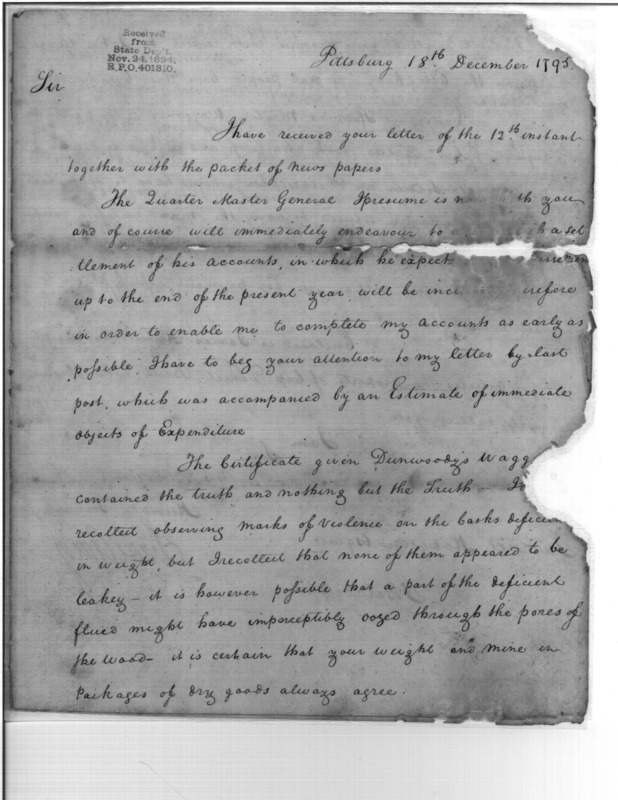 Received
from
State Dep't.
Nov. 24, 1894.
R.P.O. 401310.
Pittsburg 18th December 1795.
Sir
I have received your letter of the 12th instant
together with the packet of news papers
The Quarter Master General I presume is th you
and of course will immediately endeavour to h a set
tlement of his accounts, in which he expect
up to the end of the present year will be inc refore
in order to enable me to complete my accounts as early as
possible, I have to beg your attention to my letter by last
post, which was accompanied by an Estimate of immediate
objects of Expenditure
The Certificate given Dunwoody's Wagg
contained the truth and nothing but the Truth —
recollect observing marks of violence on the casks deficien
in weight, but I recollect that none of them appeared to be
leakey — it is however possible that a part of the deficient
flued might have imperceptibly oozed through the pores of
the wood — it is certain that your weight and mine in
packages of dry goods always agree.